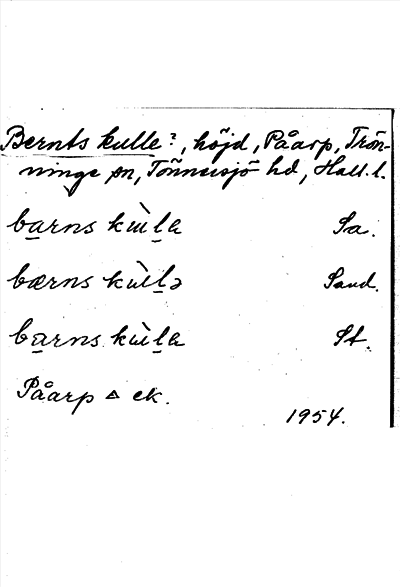 Bernts kulle?, höjd, Påarp, Trön-
ninge sn, Tönnersjö hd, Hall. l.
ba̲rns kɯ̀l̲a Sa.
bærns kɯ̀l̲ə Sand.
ba̲rns kɯ̀l̲a St.
Påarp △ ek.
1954.